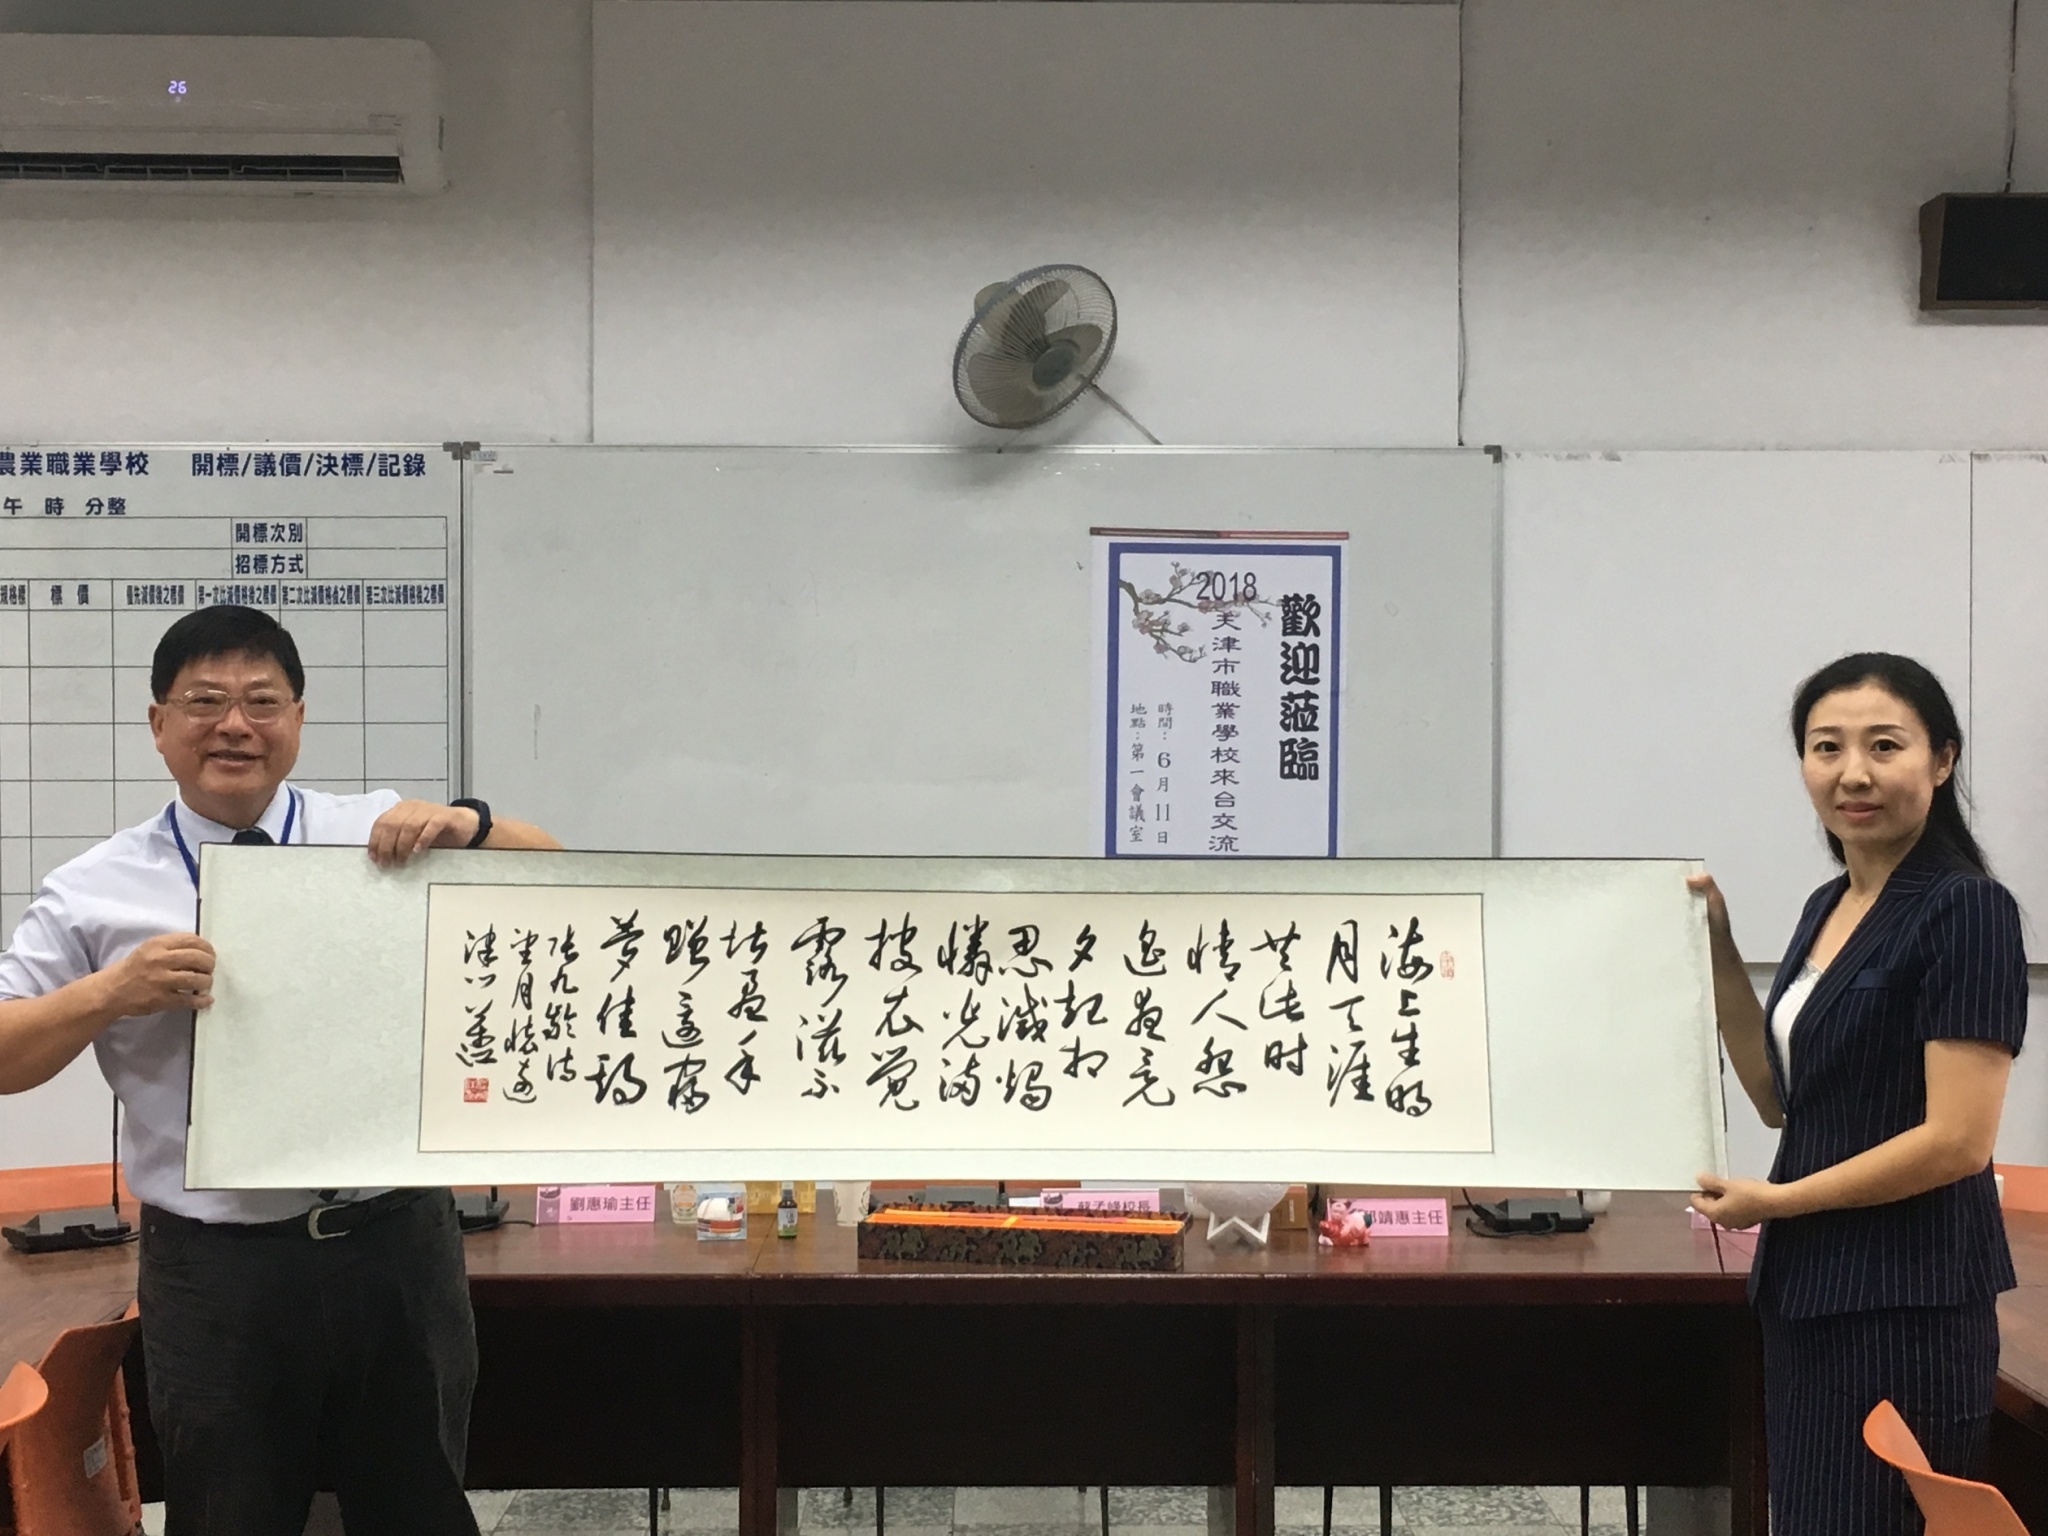 26
農業職業學校 開標/議價/決標/記錄
午 時 分整
開標次別
招標方式
規格標 標 價 優先減價後之標價 第一次比減價格後之標價 第二次比減價格後之標價 第三次比減價格後之標價
歡迎蒞臨
2018
天津市職業學校來台交流
時間：6月11日
地點：第一會議室
海上生明
月天涯
共此时
情人怨
遥夜竟
夕起相
思滅燭
憐光满
披衣觉
露滋不
堪盈手
贈還寢
夢佳期
张九龄诗
望月怀远
劉惠瑜主任
校長
邱靖惠主任